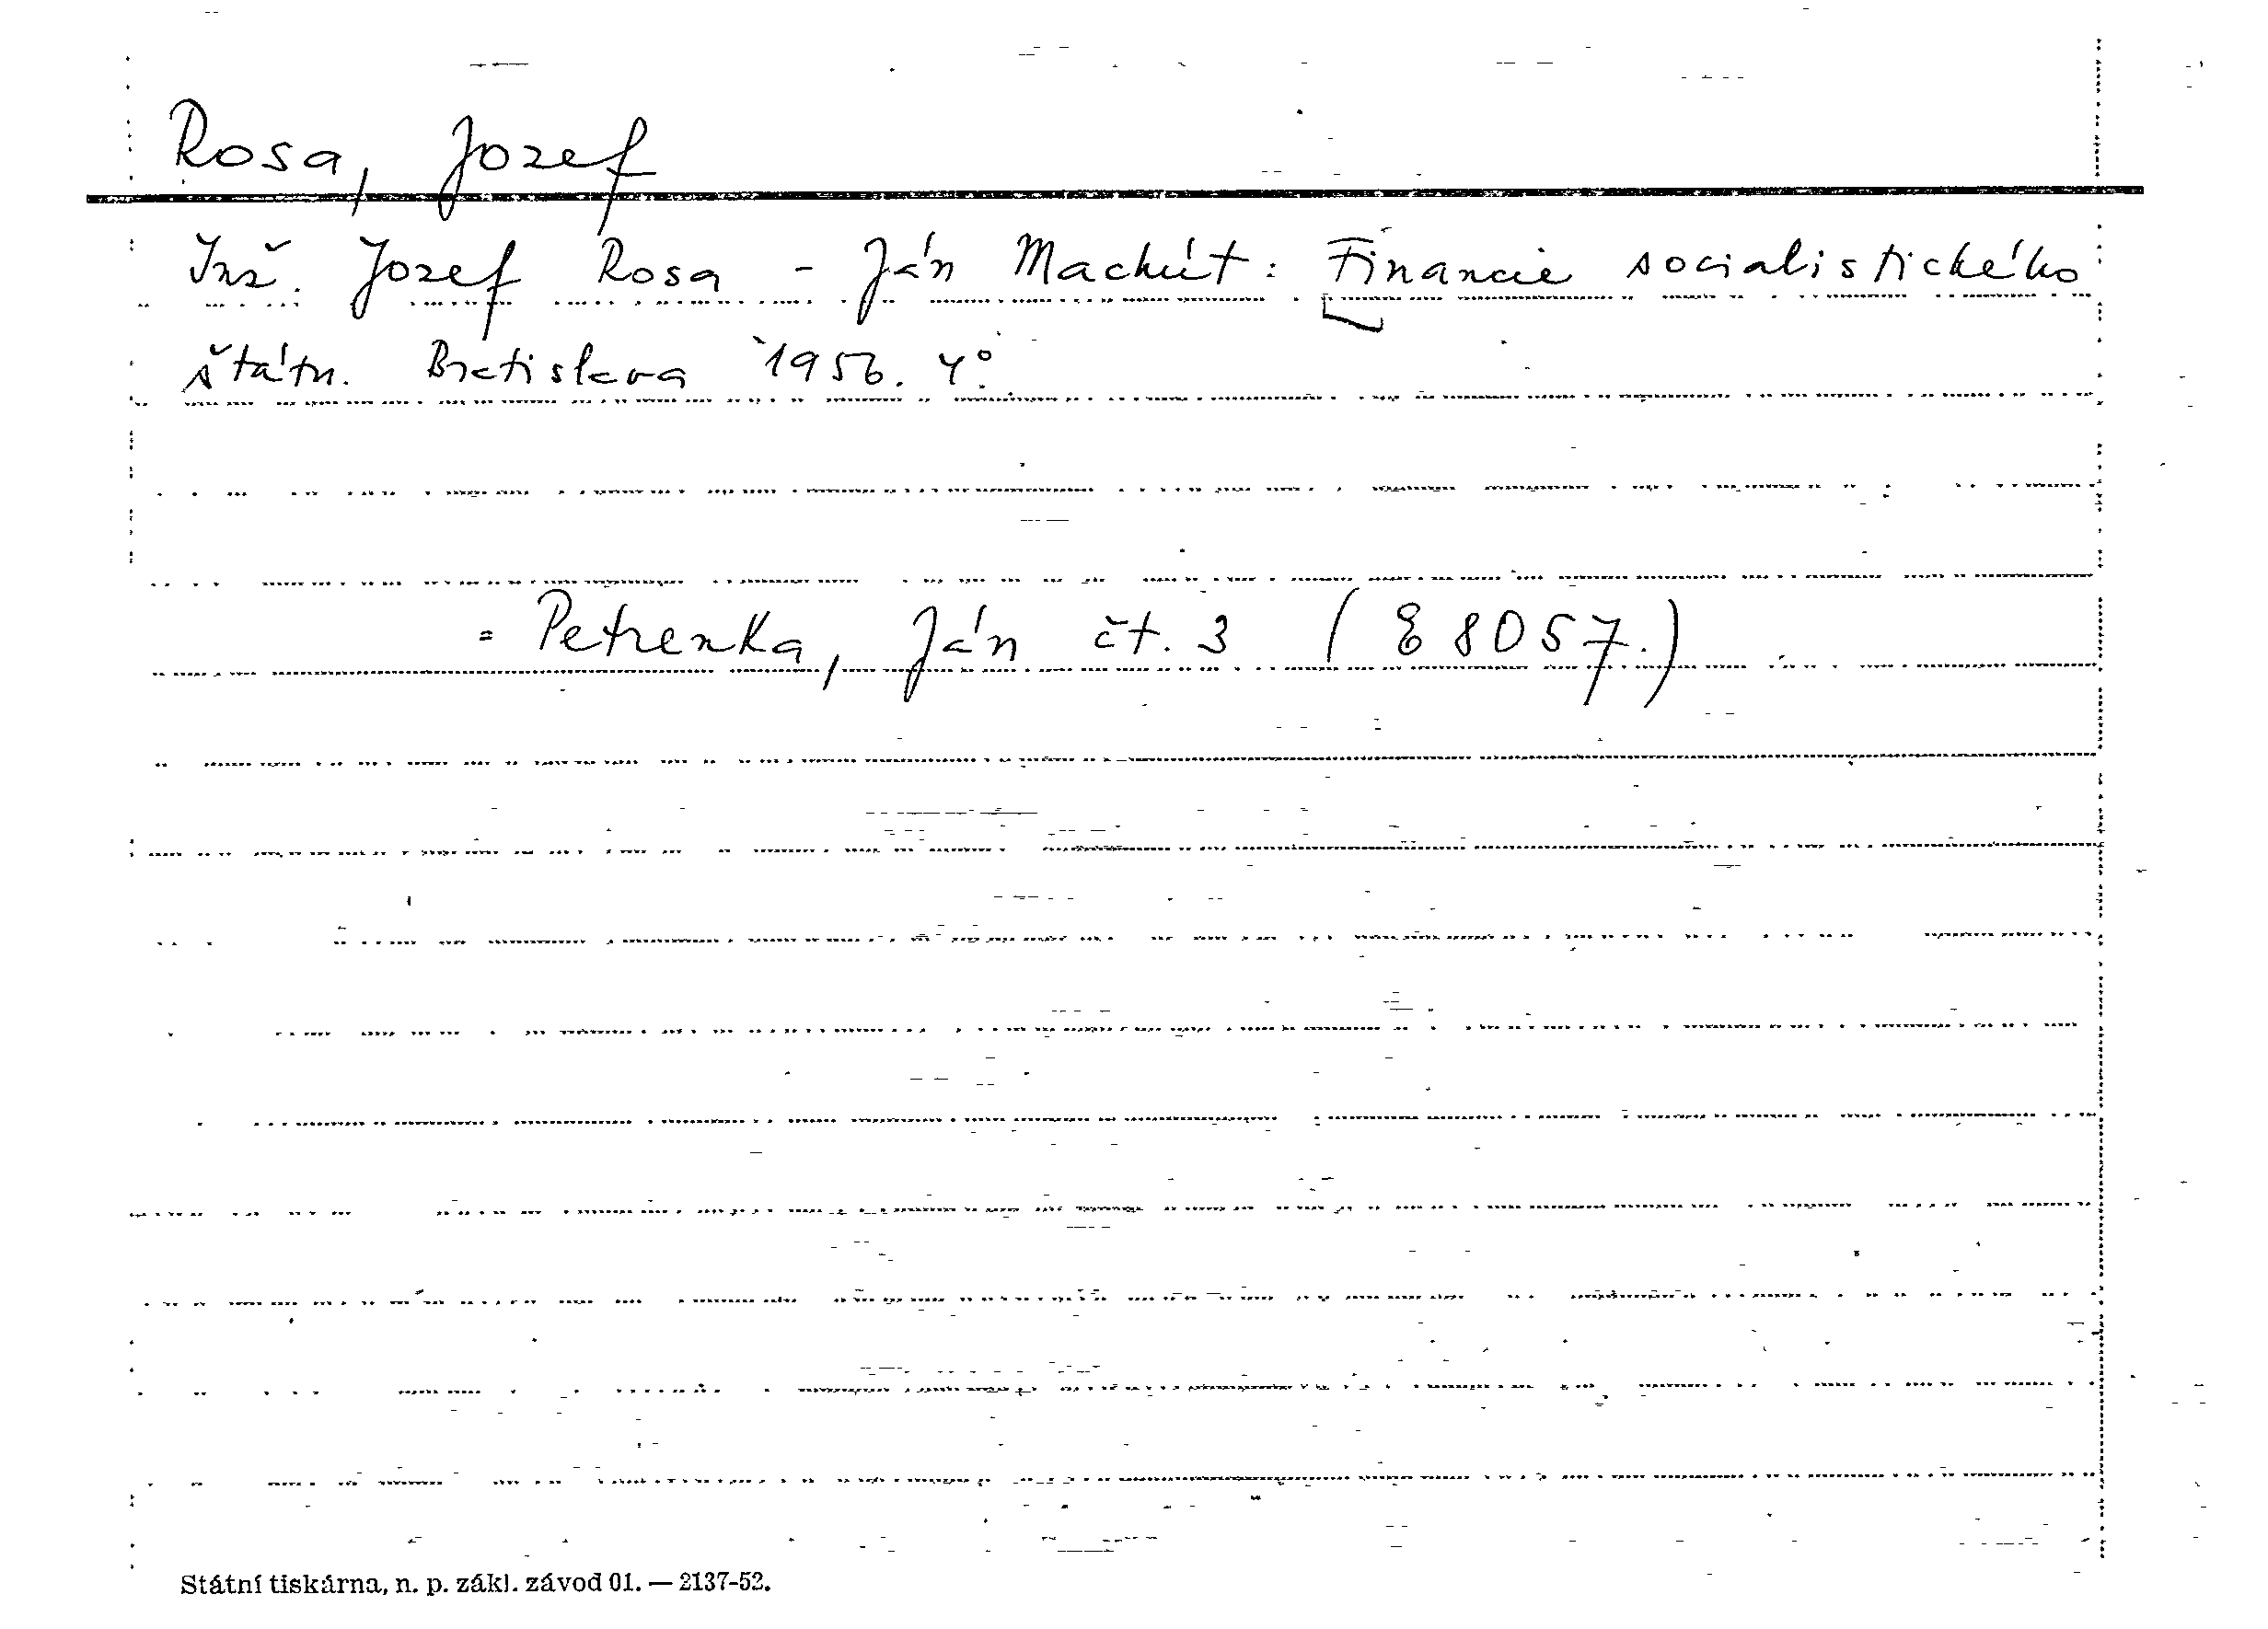 Rosa, Jozef
Inž. Jozef Rosa - Ján Machút: Financie socialistického
štátu. Bratislava 1956. 4°.
= Petrenka, Ján čt. 3 (E 8057.)
Státní tiskárna, n. p. zákl. závod 01. — 2137-52.